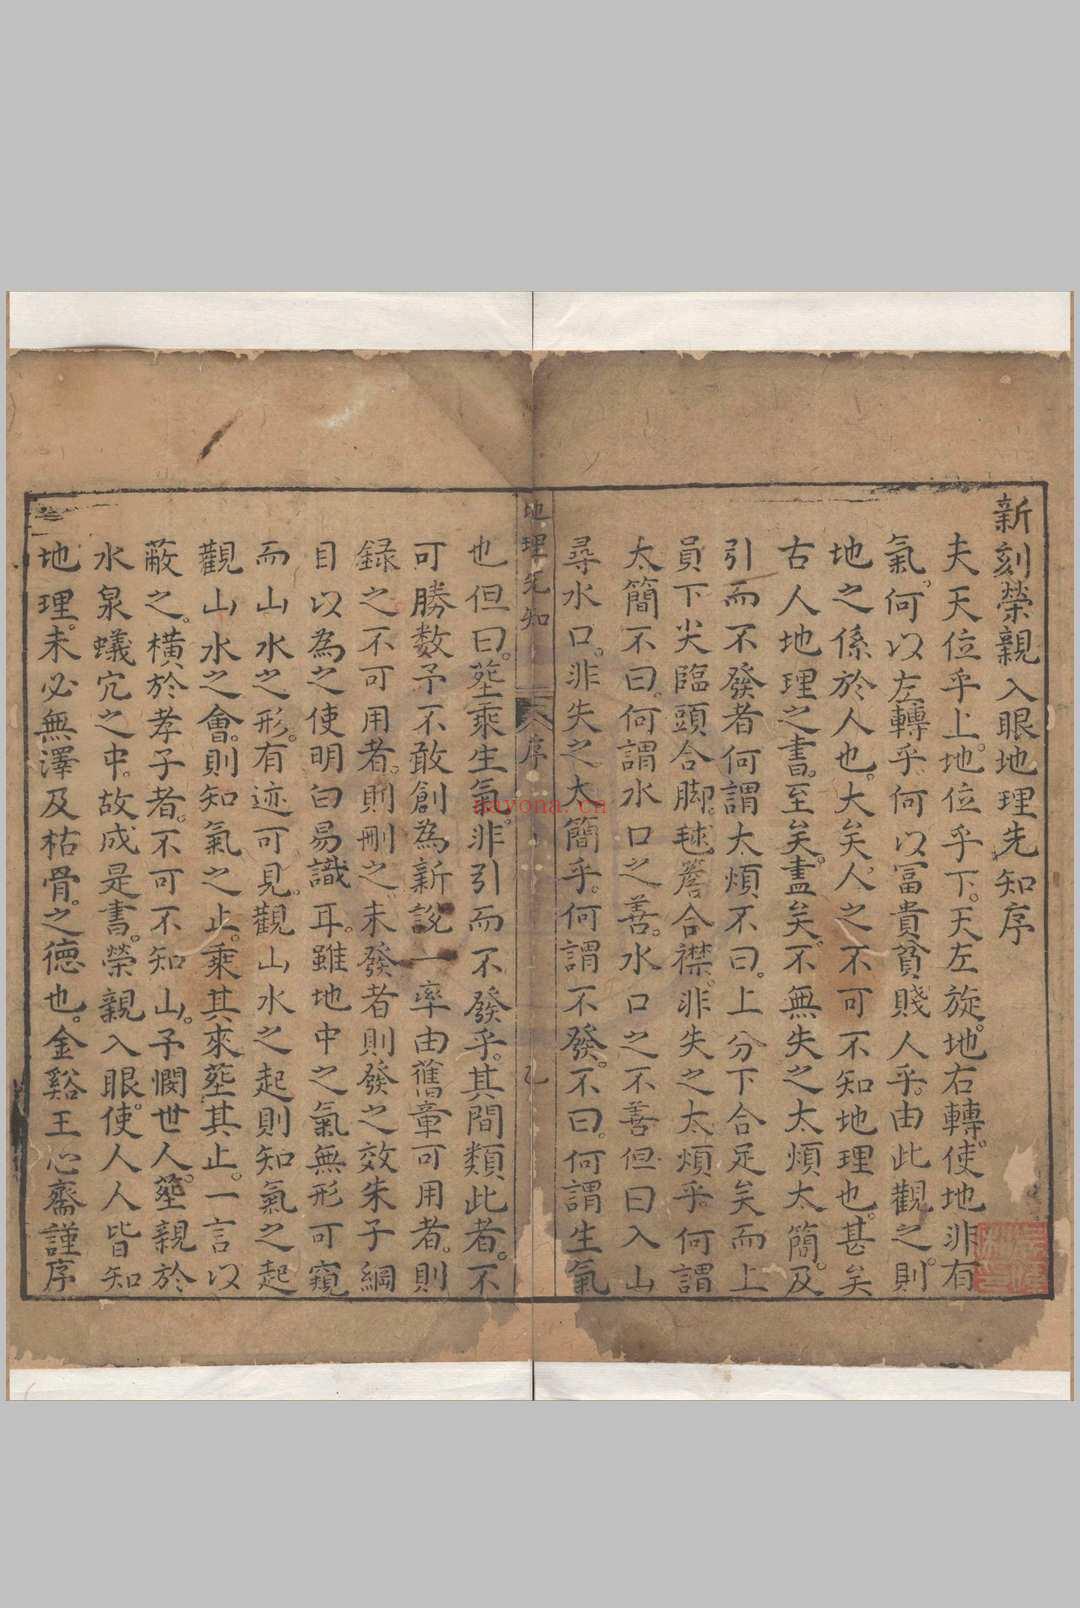 新刻榮親入眼地理先知序
夫天位乎上。地位乎下。天左旋。地右轉。使地非有
氣。何以左轉乎。何以富貴貧賤人乎。由此觀之。則
地之係於人也。大矣。人之不可不知地理也。甚矣
古人地理之書。至矣。盡矣。不無失之太煩太簡。及
引而不發者何謂太煩不曰。上分下合足矣而上
員下尖臨頭合脚。毬簷合襟。非失之太煩乎。何謂
太簡不曰。何謂水口之善。水口之不善但曰入山
尋水口。非失之太簡乎。何謂不發。不曰。何謂生氣
地理先知 序 乙
也但曰。塟乘生氣。非引而不發乎。其間類此者。不
可勝数予不敢創為新說一率由舊章可用者。則
録之不可用者。則刪之未發者則發之效朱子綱
目以為之使明白易識耳。雖地中之氣無形可窺
而山水之形。有迹可見。觀山水之起則知氣之起
觀山水之會。則知氣之止。乘其來塟其止。一言以
蔽之。橫於孝子者。不可不知山。予憫世人。塟親於
水泉蟻穴之中。故成是書。榮親入眼。使人人皆知
地理。未必無澤及枯骨。之德也。金谿王心齋謹序
nayona.cn